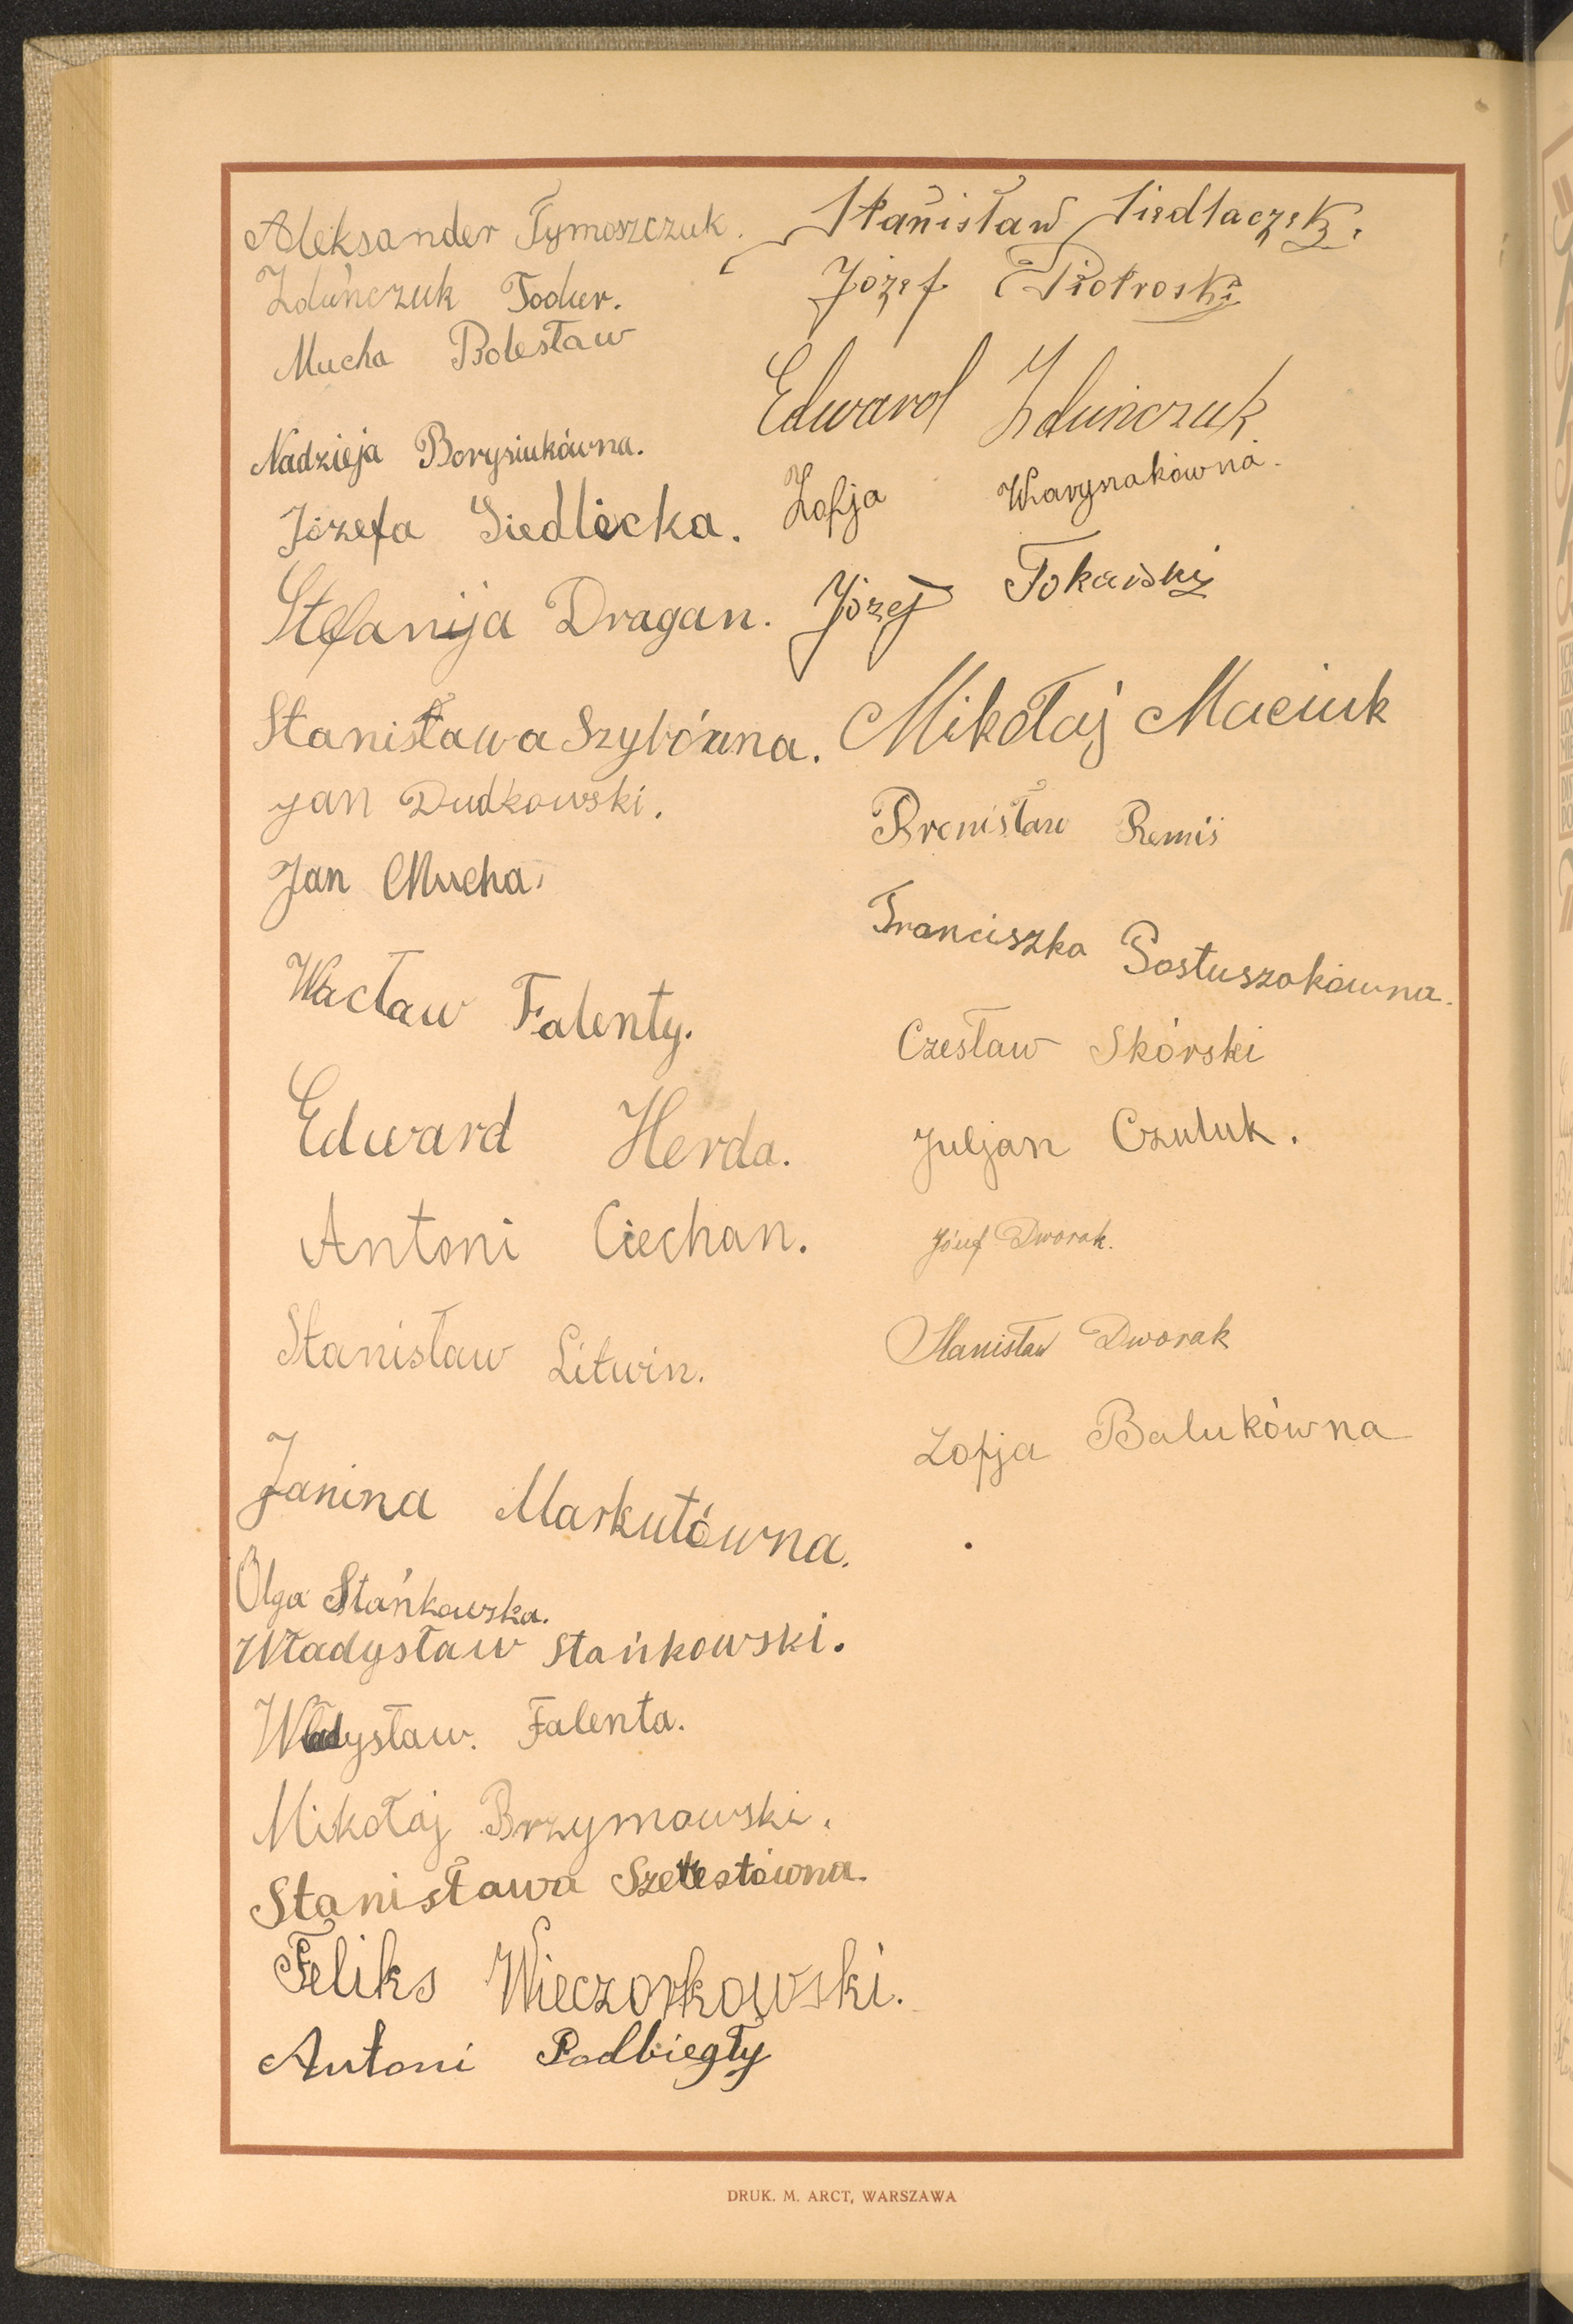 Aleksander Tymoszczuk.
Zduńczuk Todur.
Mucha Bolesław
Nadzieja Borysiukówna.
Józefa Siedlecka.
Stefanija Dragan.
Stanisława Szybówna.
Jan Dudkowski.
Jan Mucha.
Wacław Falenty.
Edward Herda.
Antoni Ciechan.
Stanisław Litwin.
Janina Markutówna.
Olga Stańkowska.
Władysław Stańkowski.
Władysław. Falenta.
Mikołaj Brzymowski.
Stanisława
Feliks Wieczorkowski.
Antoni Podbiegły
Stanisław Siedlaczek.
Józef Piotroski
Edward Zduńczuk
Zofja Warysiakówna.
Józef Tokarski
Mikołaj Maciuk
Bronisław Remiś
Franciszka Postuszakówna.
Czesław Skórski
Juljan Czuluk.
Józef Dworak.
Stanisław Dworak
Zofja Balukówna
DRUK. M. ARCT, WARSZAWA